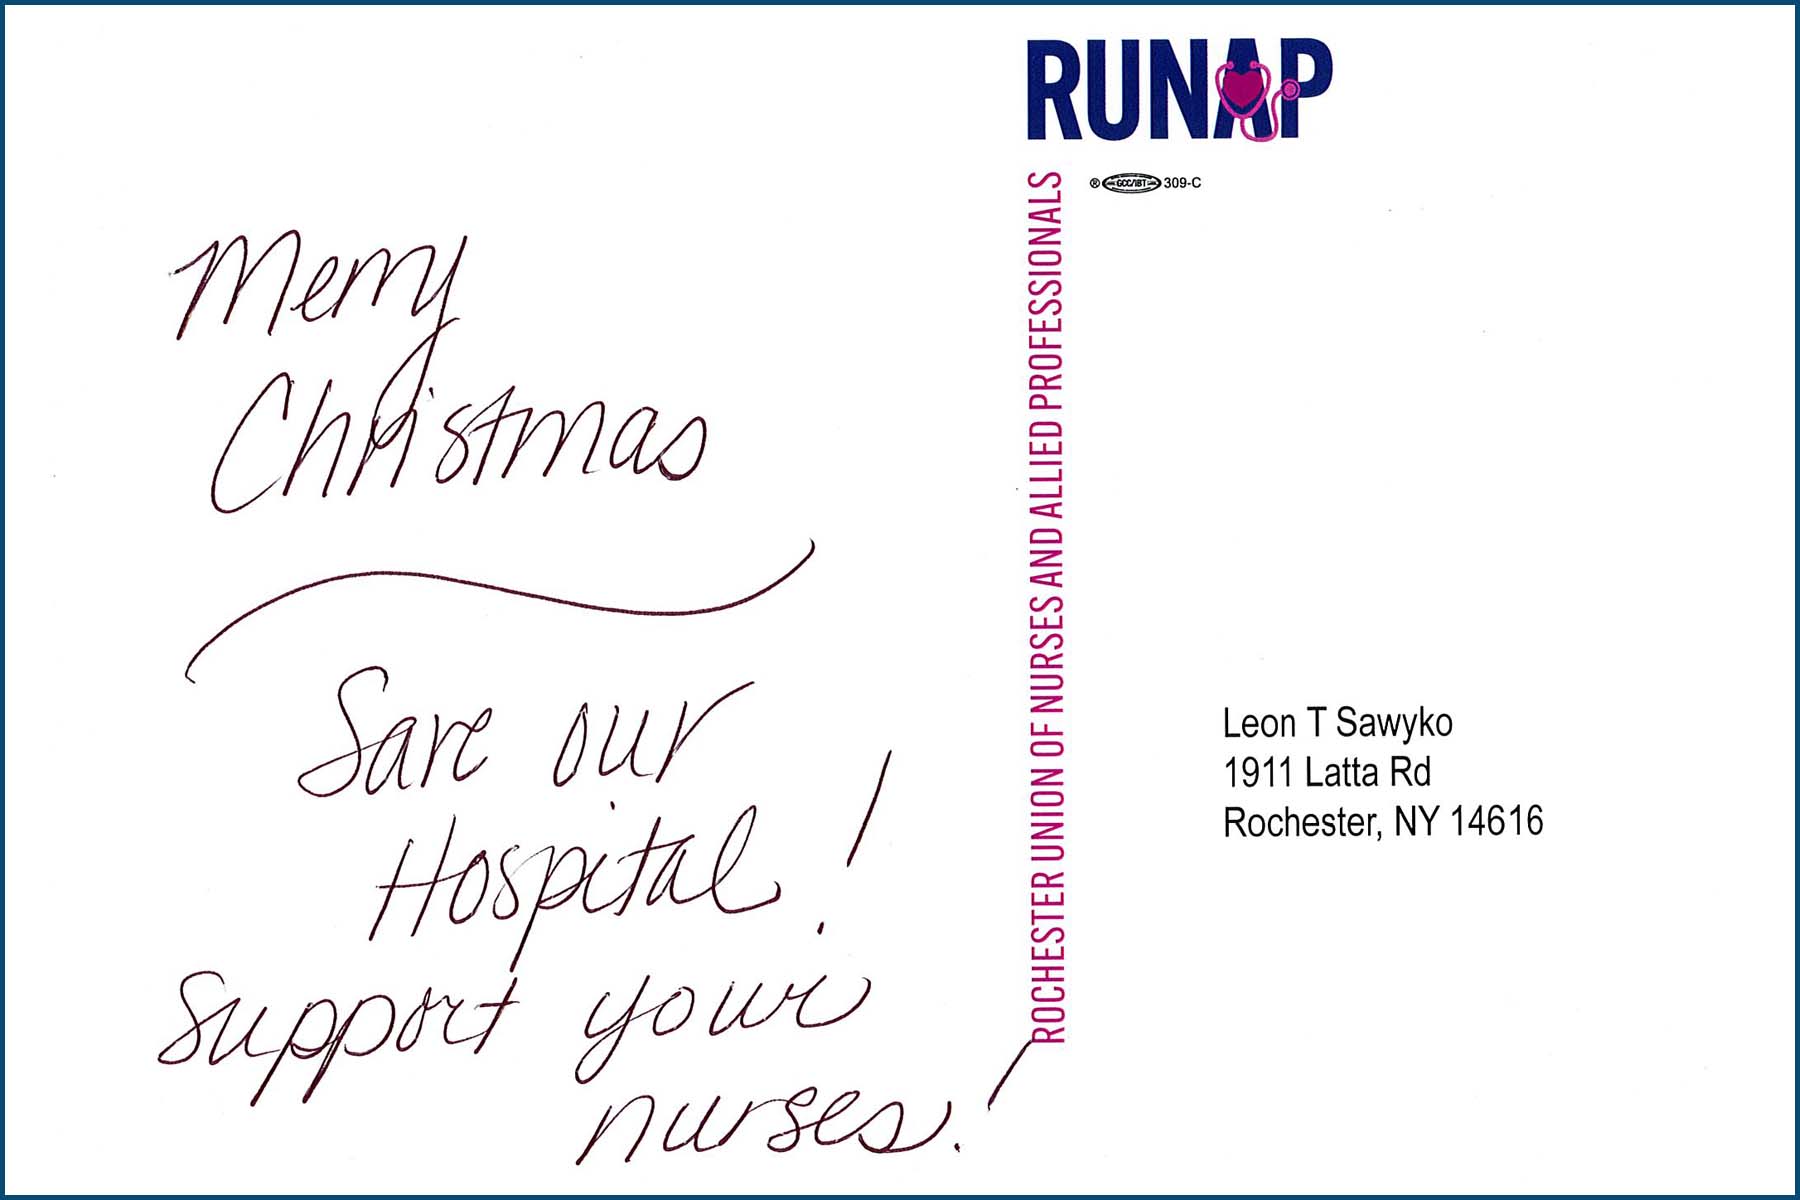 Merry
Christmas
Save our
Hospital!
Support your
nurses!
RUNAP
® GCC/IBT 309-C
ROCHESTER UNION OF NURSES AND ALLIED PROFESSIONALS
Leon T Sawyko
1911 Latta Rd
Rochester, NY 14616